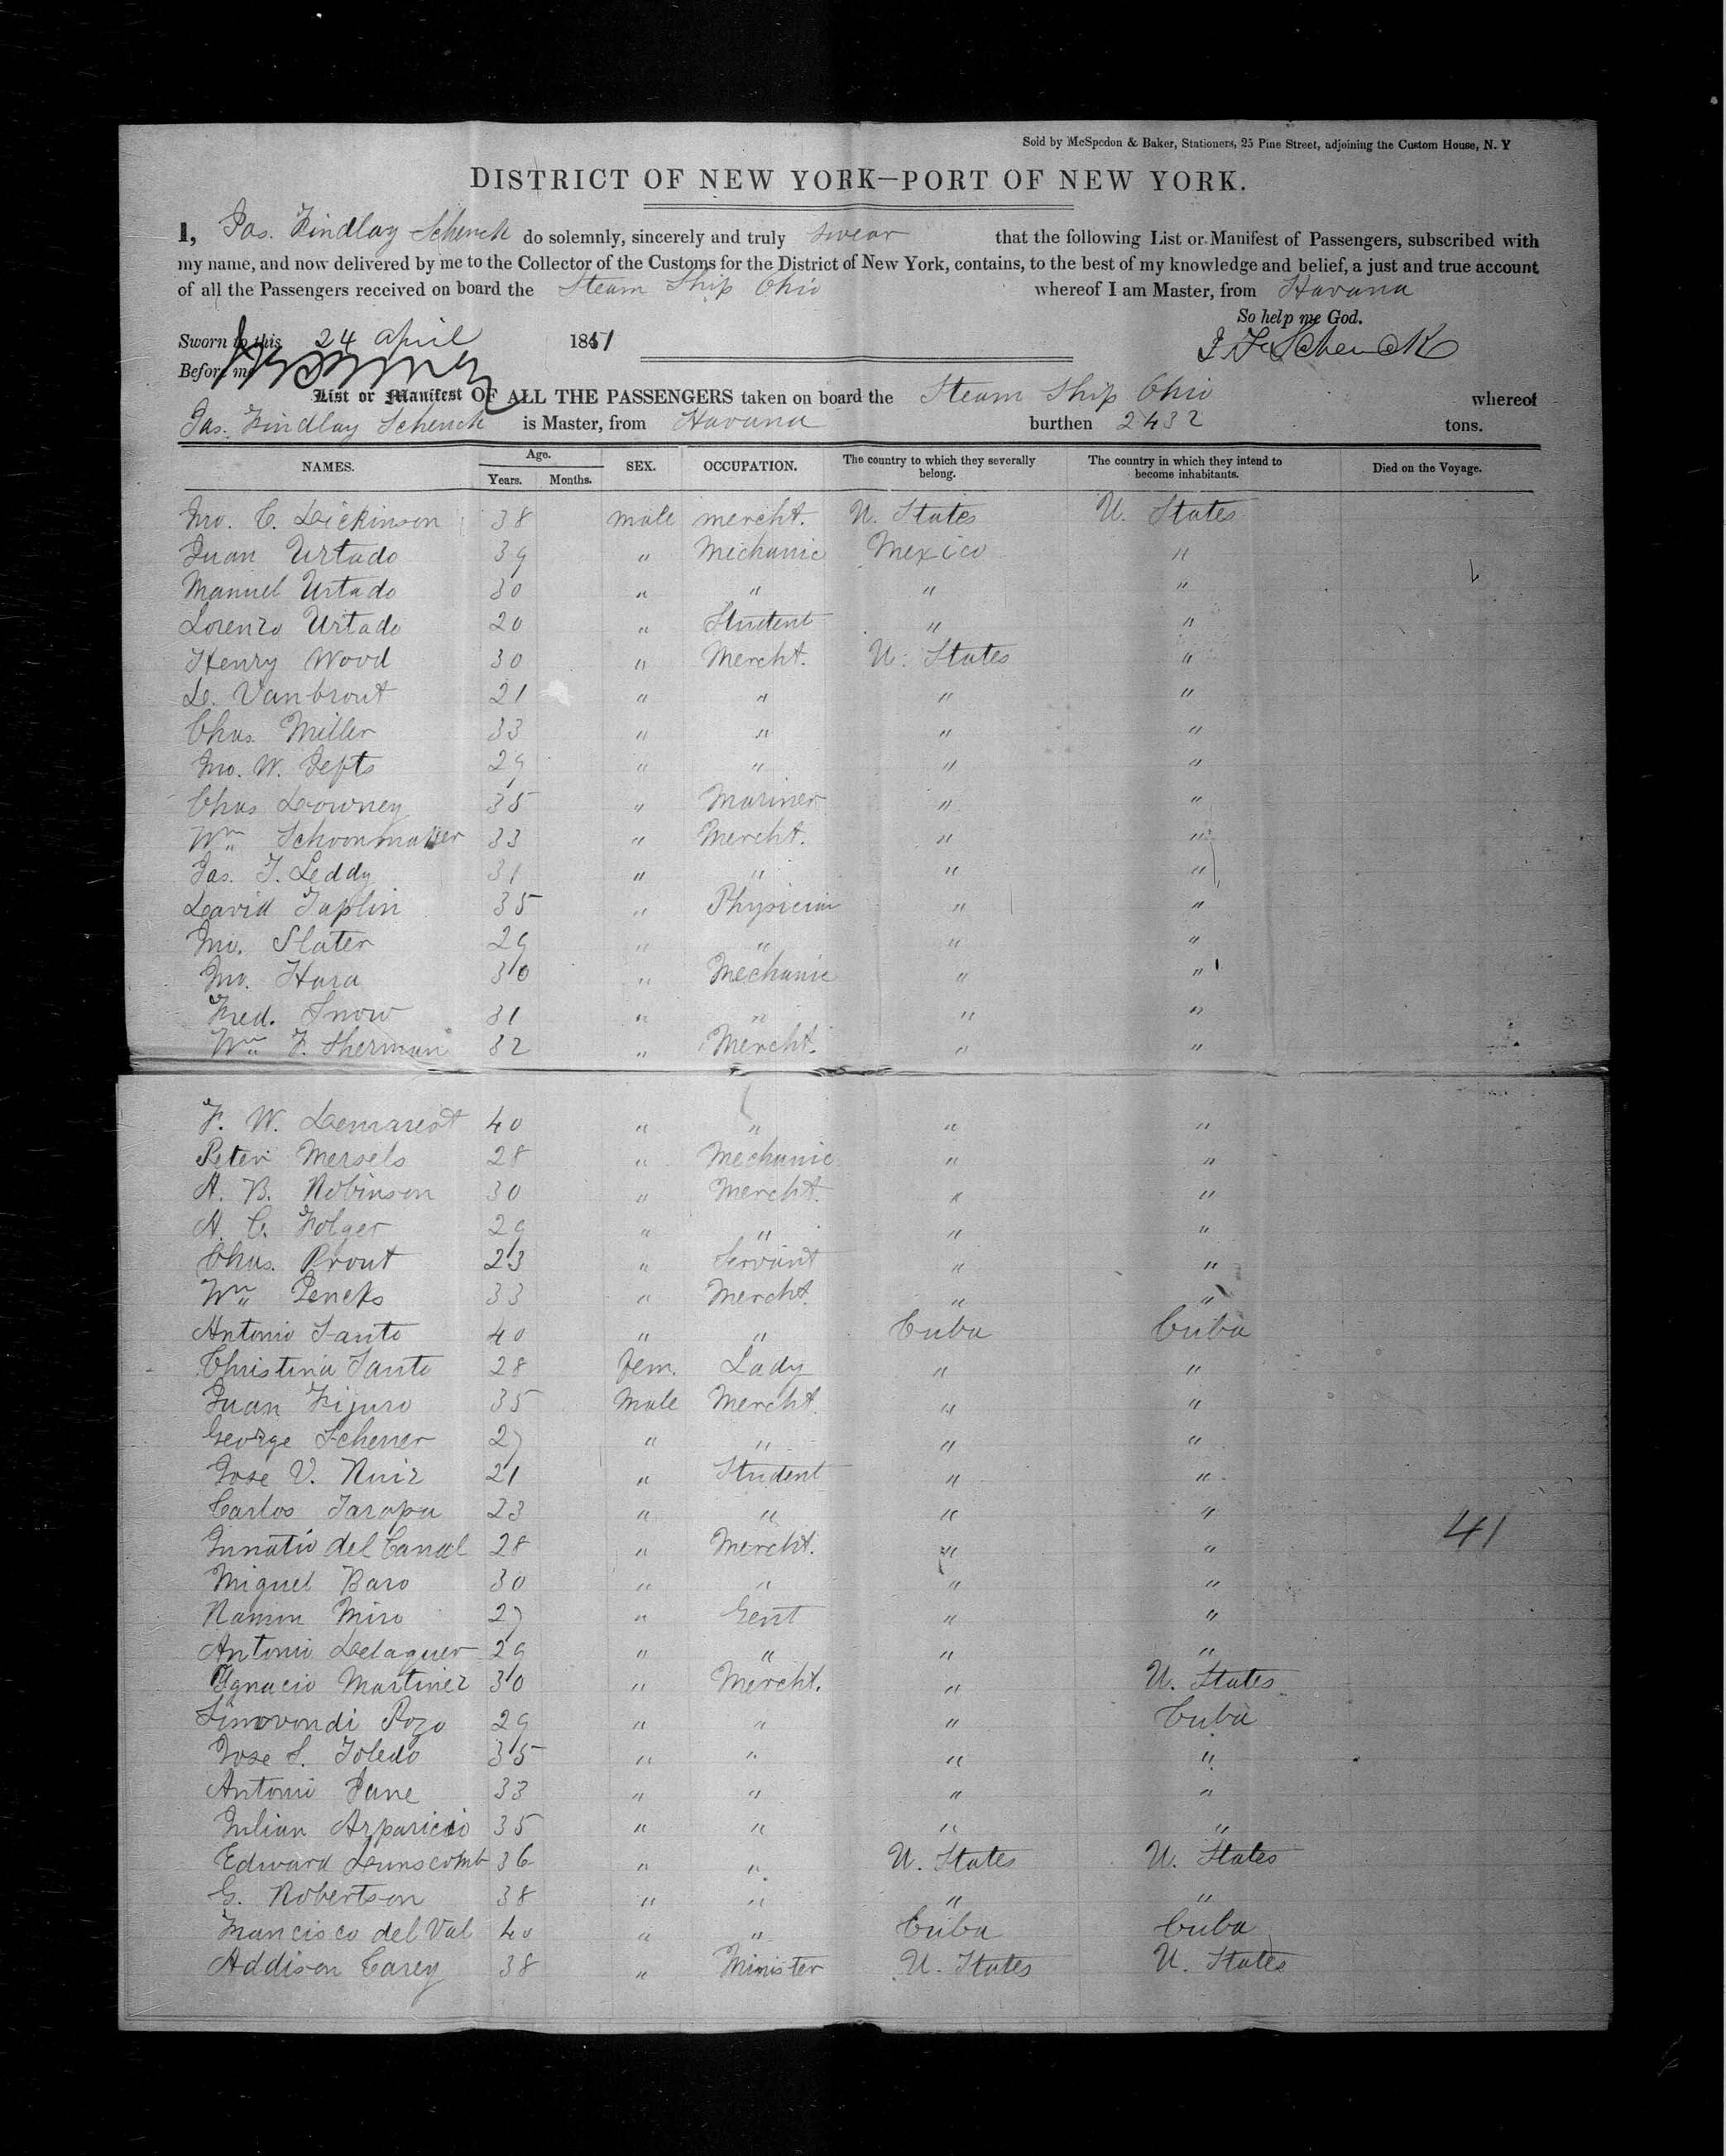 Sold by McSpedon & Baker, Stationers, 25 Pine Street, adjoining the Custom House, N. Y
DISTRICT OF NEW YORK—PORT OF NEW YORK.
I, Jas. Findlay Schenck do solemnly, sincerely and truly swear that the following List or Manifest of Passengers, subscribed with
my name, and now delivered by me to the Collector of the Customs for the District of New York, contains, to the best of my knowledge and belief, a just and true account
of all the Passengers received on board the Steam Ship Ohio whereof I am Master, from Havana
So help me God.
Sworn to this 24 April 1851 J. F. Schenck
Before me
List or Manifest OF ALL THE PASSENGERS taken on board the Steam Ship Ohio whereof
Jas. Findlay Schenck is Master, from Havana burthen 2432 tons.
NAMES. Age. Years. Months. SEX. OCCUPATION. The country to which they severally belong. The country in which they intend to become inhabitants. Died on the Voyage.
Jno. C. Dickinson 38 male mercht. U. States U. States
Juan Urtado 39 " Mechanic Mexico "
Manuel Urtado 30 " " " "
Lorenzo Urtado 20 " Student " "
Henry Wood 30 " Mercht. U. States "
D. Vanbrout 21 " " " "
Chas. Miller 33 " " " "
Jno. W. Jefts 29 " " " "
Chas Downey 35 " Mariner " "
Wm Schoonmaker 33 " Mercht. " "
Jas. T. Leddy 31 " " " "
David Taplin 35 " Physician " "
Jno. Slater 29 " " " "
Jno. Hara 30 " Mechanic " "
Fred. Snow 31 " " " "
Wm F. Sherman 32 " Mercht. " "
F. W. Demarest 40 " " " "
Peter Mersels 28 " Mechanic " "
A. B. Robinson 30 " Mercht. " "
A. C. Folger 29 " " " "
Chas. Prout 23 " Servant " "
Wm Jencks 33 " Mercht. " "
Antonio Santo 40 " " Cuba Cuba
Christina Santo 28 fem. Lady " "
Juan Fijuro 35 Male Mercht. " "
George Schener 27 " " " "
Jose V. Ruiz 21 " Student " "
Carlos Tarapa 23 " " " "
del Canal 28 " Mercht. " " 41
Miguel Baro 30 " " " "
Ramon Miro 27 " Gent " "
Antonio Delaguer 29 " " " "
Ignacio Martinez 30 " Mercht. " U. States
Pozo 29 " " " Cuba
Jose S. Toledo 35 " " " "
Antonio Jane 33 " " " "
Julian Arparicio 35 " " " "
Edward Dunscomb 36 " " U. States U. States
G. Robertson 38 " " " "
Francisco del Val 40 " " Cuba Cuba
Addison Carey 38 " Minister U. States U. States